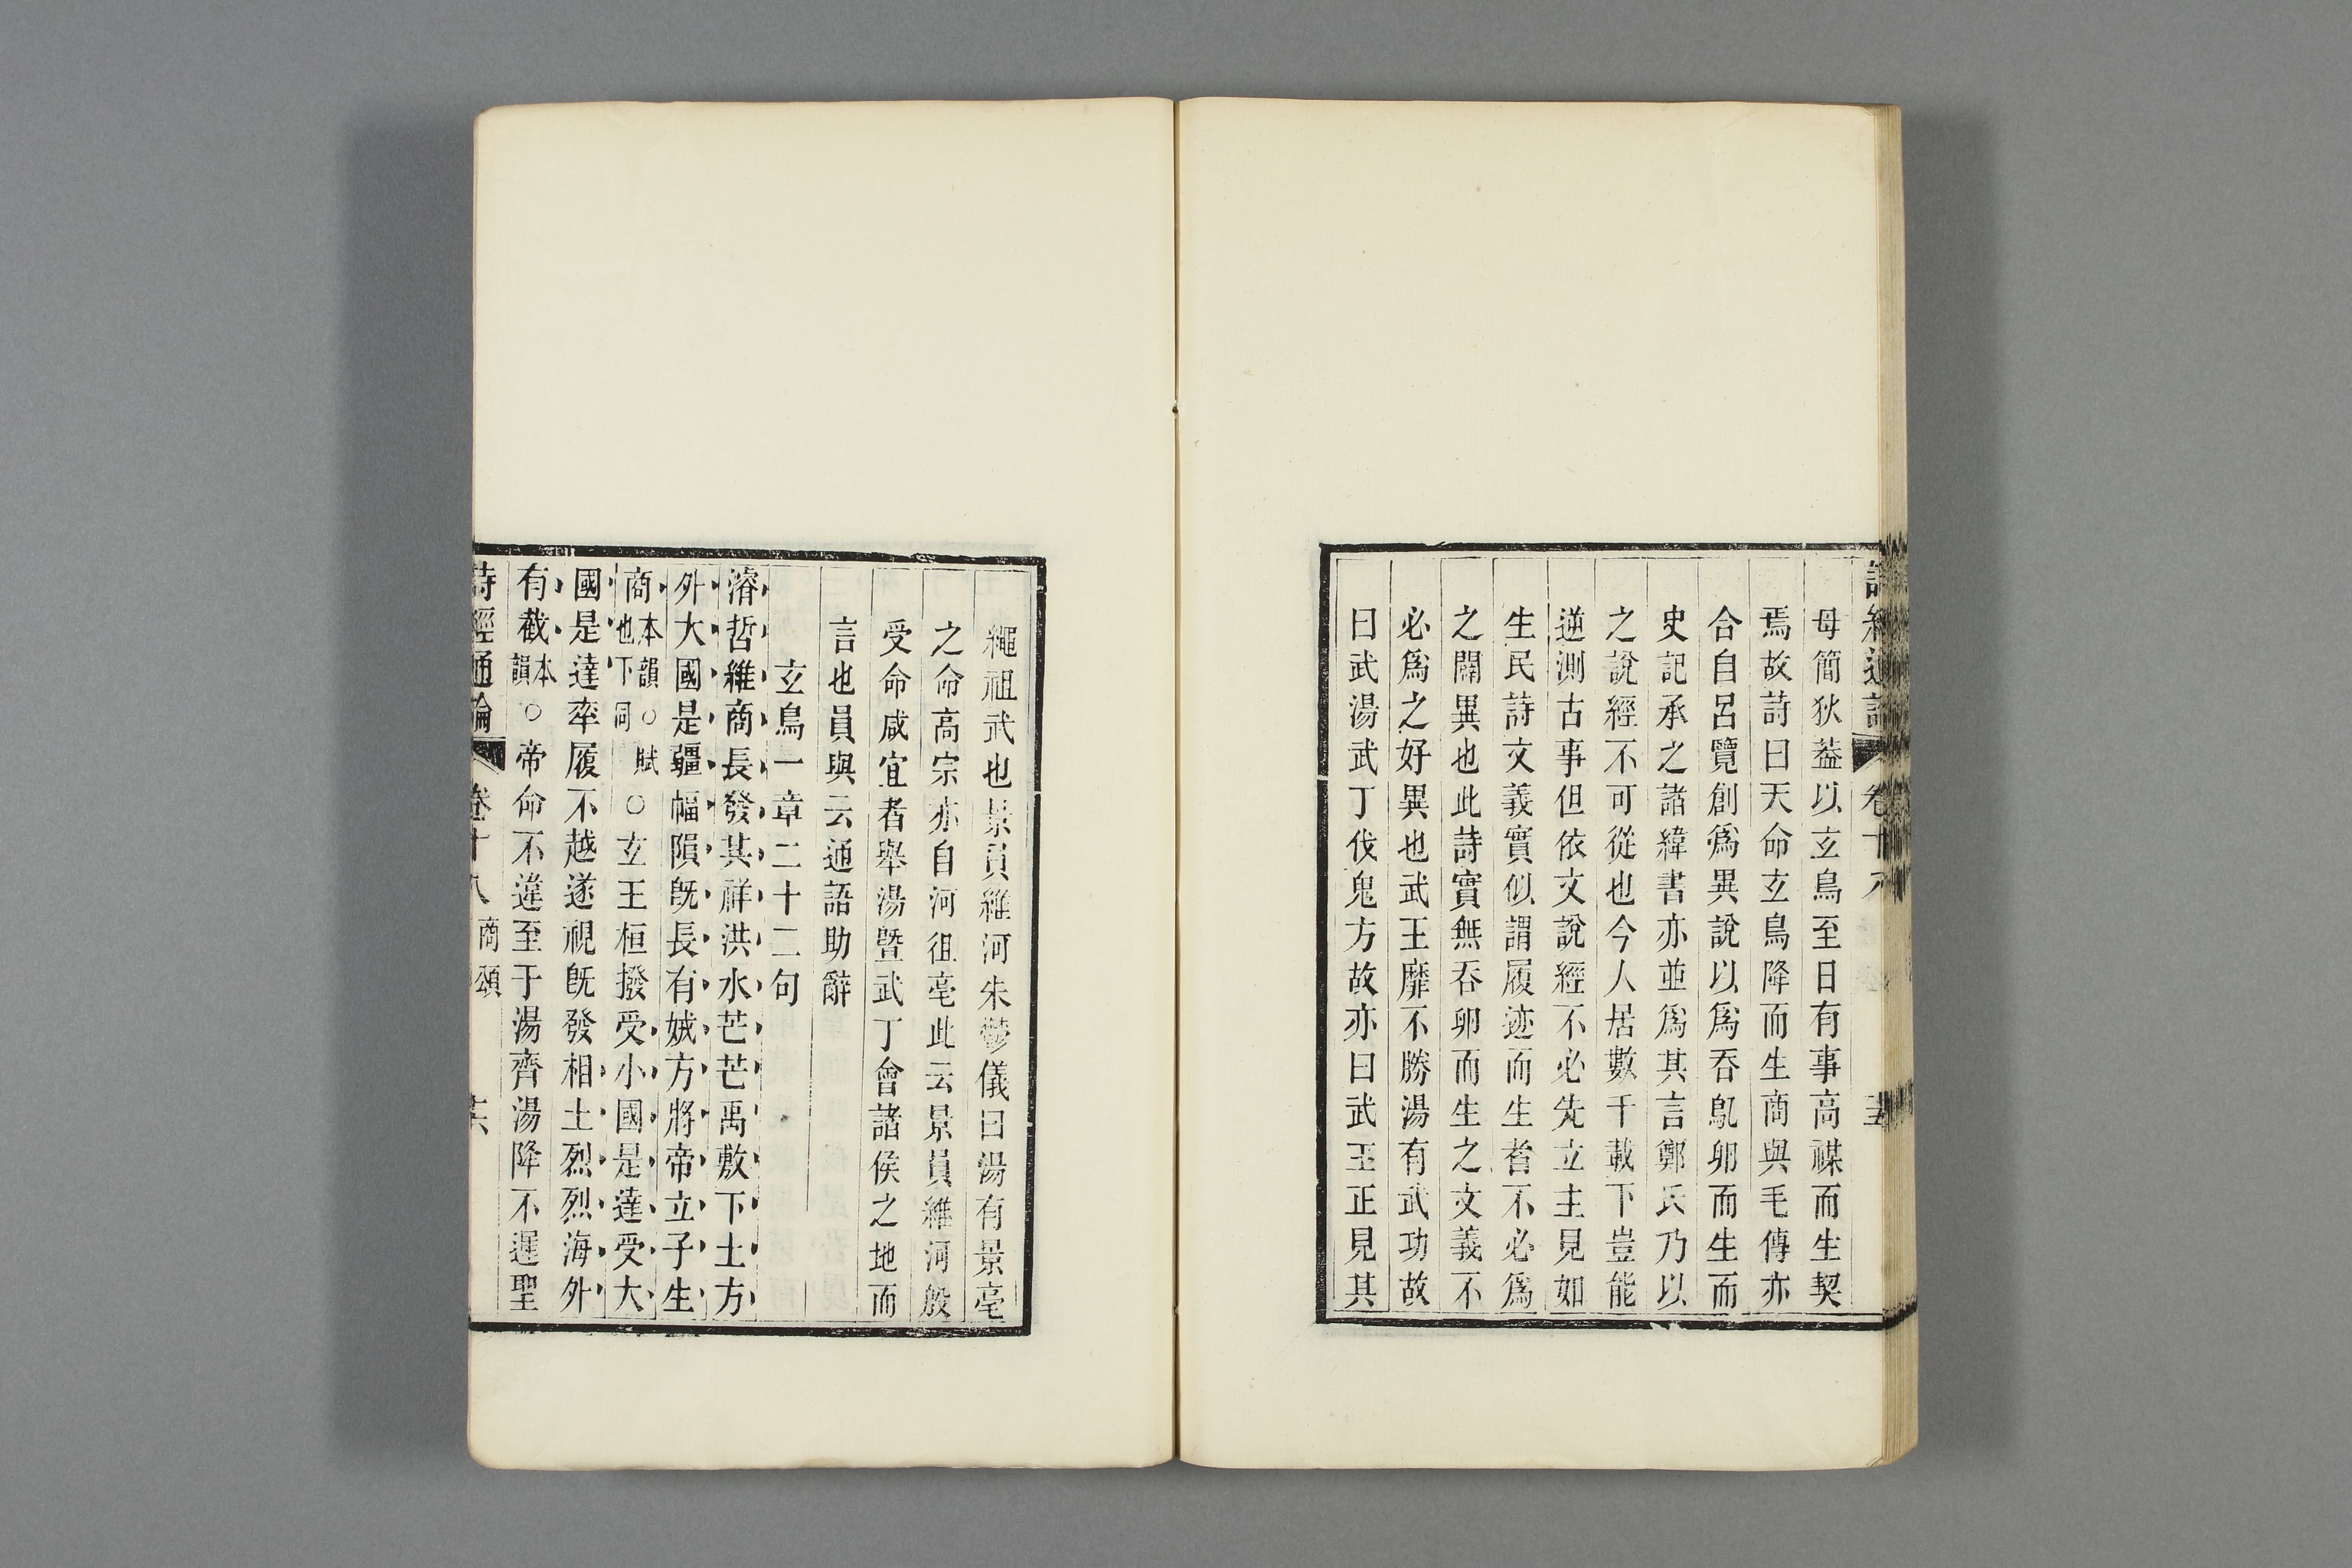 詩經通論 卷十八 十五
母簡狄葢以玄鳥至日有事高禖而生契
焉故詩曰天命玄鳥降而生商與毛傳亦
合自呂覽創爲異說以爲吞鳦卵而生而
史記承之諸緯書亦並爲其言鄭氏乃以
之說經不可從也今人居數千載下豈能
逆測古事但依文說經不必先立主見如
生民詩文義實似謂履迹而生者不必爲
之闢異也此詩實無吞卵而生之文義不
必爲之好異也武王靡不勝湯有武功故
曰武湯武丁伐鬼方故亦曰武王正見其
繩祖武也景員維河朱鬱儀曰湯有景亳
之命高宗亦自河徂亳此云景員維河殷
受命咸宜者舉湯曁武丁會諸侯之地而
言也員與云通語助辭
玄鳥一章二十二句
濬哲維商長發其祥洪水芒芒禹敷下土方
外大國是疆幅隕旣長有娀方將帝立子生
商本韻○賦也下同○玄王桓撥受小國是達受大
國是達率履不越遂視旣發相土烈烈海外
有截本韻○帝命不違至于湯齊湯降不遲聖
詩經通論 卷十八 商頌 十六